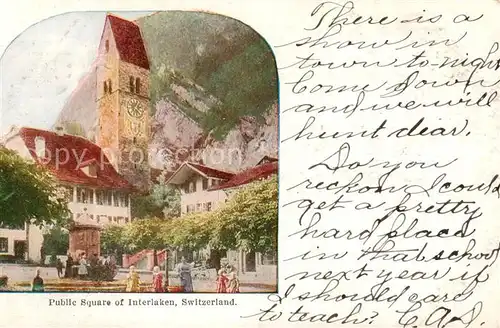 There is a
show in
town to-night
Come down
and we will
hunt dear.
Do you
reckon I could
get a pretty
hard place
in that school
next year if
I should care
to teach? C.A.D.
Public Square of Interlaken, Switzerland.